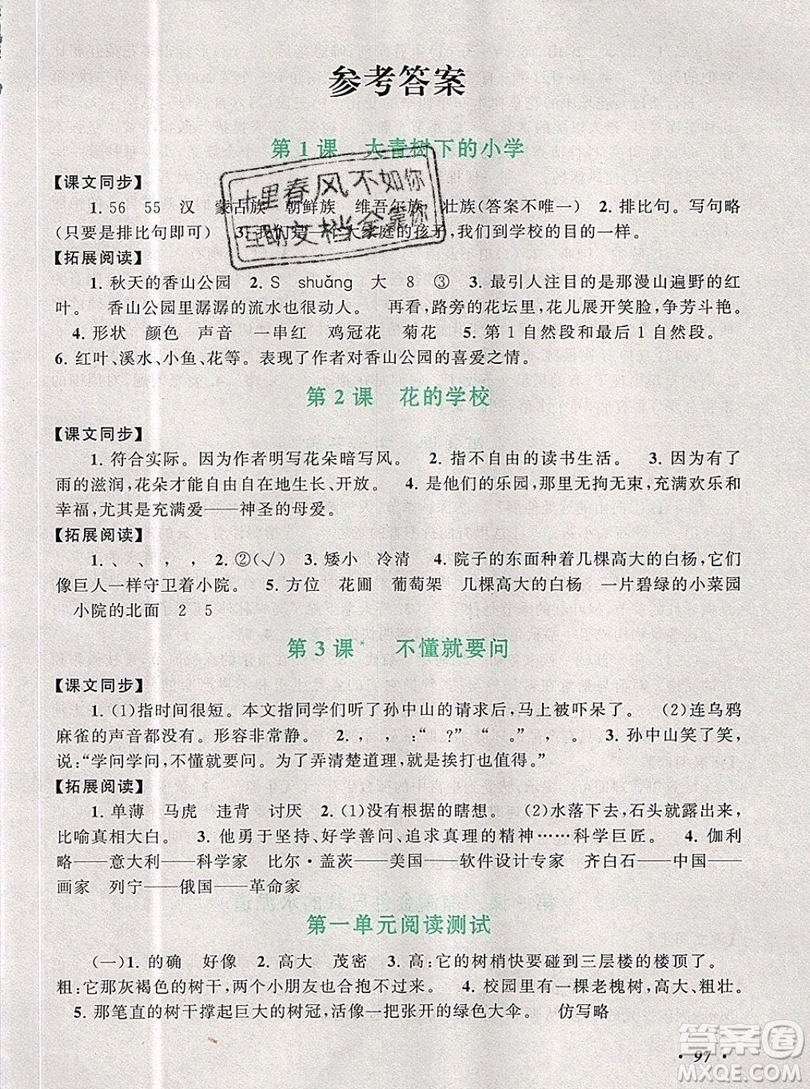 参考答案
第1课 大青树下的小学
【课文同步】
1. 56 55 汉 蒙古族 朝鲜族 维吾尔族 壮族(答案不唯一) 2. 排比句。写句略
(只要是排比句即可) 3. 大家庭的孩子,我们到学校的目的一样。
【拓展阅读】
1. 秋天的香山公园 2. S shuǎng 大 8 ③ 3. 最引人注目的是那漫山遍野的红
叶。 香山公园里潺潺的流水也很动人。 再看,路旁的花坛里,花儿展开笑脸,争芳斗艳。
4. 形状 颜色 声音 一串红 鸡冠花 菊花 5. 第1自然段和最后1自然段。
6. 红叶、溪水、小鱼、花等。表现了作者对香山公园的喜爱之情。
第2课 花的学校
【课文同步】
1. 符合实际。因为作者明写花朵暗写风。 2. 指不自由的读书生活。 3. 因为有了
雨的滋润,花朵才能生长、开放。 4. 是他们的乐园,那里无拘无束,充满欢乐和
幸福,尤其是充满爱——神圣的母爱。
【拓展阅读】
1. 、 、 , , 2. ②(√) 3. 矮小 冷清 4. 院子的东面种着几棵高大的白杨,它们
像巨人一样守卫着小院。 5. 方位 花圃 葡萄架 几棵高大的白杨 一片碧绿的小菜园
小院的北面 2 5
第3课* 不懂就要问
【课文同步】
1. (1)指时间很短。本文指同学们听了孙中山的请求后,马上被吓呆了。 (2)连乌鸦
麻雀的声音都没有。形容非常静。 2. , “ ? ” “ 。” , 。 3. 孙中山笑了笑,
说:“学问学问,不懂就要问。为了弄清楚道理,就是挨打也值得。”
【拓展阅读】
1. 单薄 马虎 违背 讨厌 2. (1)没有根据的瞎想。 (2)水落下去,石头就露出来,
比喻真相大白。 3. 他勇于坚持、好学好问、追求真理的精神……科学巨匠。 4. 伽利
略——意大利——科学家 比尔·盖茨——美国——软件设计专家 齐白石——中国——
画家 列宁——俄国——革命家
第一单元阅读测试
(一)1. 的确 好像 2. 高大 茂密 3. 高:它的树梢快要碰到三层楼的楼顶了。
粗:它那灰褐色的树干非常粗,要三个小朋友才能抱住。 4. 校园里有一棵老槐树,高大挺拔。
5. 那笔直的树干撑起巨大的树冠,活像一把张开的绿色大伞。 仿写略
· 97 ·
十里春风不如你
互助文档金靠你
答案圈
MXQE.COM